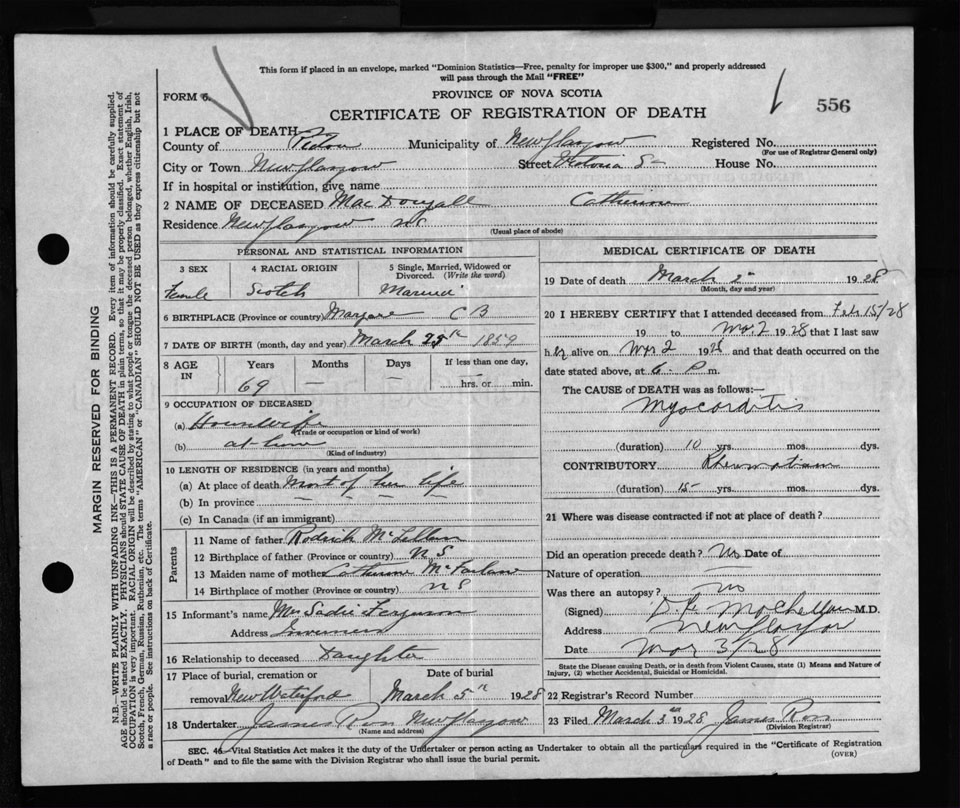 This form if placed in an envelope, marked "Dominion Statistics—Free, penalty for improper use $300," and properly addressed
will pass through the Mail "FREE"
FORM 6.
PROVINCE OF NOVA SCOTIA
CERTIFICATE OF REGISTRATION OF DEATH
556
1 PLACE OF DEATH
County of Pictou Municipality of New Glasgow Registered No.
(For use of Registrar General only)
City or Town New Glasgow Street Victoria St House No.
If in hospital or institution, give name
2 NAME OF DECEASED MacDougall Catherine
Residence New Glasgow NS
(Usual place of abode)
PERSONAL AND STATISTICAL INFORMATION
3 SEX
Female
4 RACIAL ORIGIN
Scotch
5 Single, Married, Widowed or
Divorced. (Write the word)
Married
6 BIRTHPLACE (Province or country) Margaree C B
7 DATE OF BIRTH (month, day and year) March 25th 1859
8 AGE
IN
Years
69
Months
—
Days
—
If less than one day,
hrs. or min.
9 OCCUPATION OF DECEASED
(a) Housewife
(Trade or occupation or kind of work)
(b) at home
(Kind of industry)
10 LENGTH OF RESIDENCE (in years and months)
(a) At place of death Most of her life
(b) In province — — — —
(c) In Canada (if an immigrant)
Parents
11 Name of father Rodrick McLellan
12 Birthplace of father (Province or country) NS
13 Maiden name of mother Catherine McFarlane
14 Birthplace of mother (Province or country) NS
15 Informant's name Mrs Sadie Ferguson
Address Inverness
16 Relationship to deceased Daughter
17 Place of burial, cremation or
removal New Waterford
Date of burial
March 5th 1928
18 Undertaker James Ross New Glasgow
(Name and address)
MEDICAL CERTIFICATE OF DEATH
19 Date of death March 2 1928
(Month, day and year)
20 I HEREBY CERTIFY that I attended deceased from Feb 15/28
19 to Mar 2 1928 that I last saw
her alive on Mar 2 1928 and that death occurred on the
date stated above, at 6 P m.
The CAUSE of DEATH was as follows:—
Myocarditis
(duration) 10 yrs. mos. dys.
CONTRIBUTORY Rheumatism
(duration) 15 yrs. mos. dys.
21 Where was disease contracted if not at place of death?
Did an operation precede death? no Date of
Nature of operation —
Was there an autopsy? no
(Signed) McLellan M.D.
Address New Glasgow
Date Mar 3/28
State the Disease causing Death, or in death from Violent Causes, state (1) Means and Nature of
Injury, (2) whether Accidental, Suicidal or Homicidal.
22 Registrar's Record Number
23 Filed March 3rd 1928 James Ross
(Division Registrar)
SEC. 46—Vital Statistics Act makes it the duty of the Undertaker or person acting as Undertaker to obtain all the particulars required in the "Certificate of Registration
of Death" and to file the same with the Division Registrar who shall issue the burial permit.
(OVER)
MARGIN RESERVED FOR BINDING
N.B.—WRITE PLAINLY, WITH UNFADING INK—THIS IS A PERMANENT RECORD. Every item of information should be carefully supplied.
AGE should be stated EXACTLY. PHYSICIANS should STATE CAUSE OF DEATH in plain terms, so that it may be properly classified. Exact statement of
OCCUPATION is very important. RACIAL ORIGIN will be described by stating to what people or tongue the deceased person belonged, whether English, Irish,
Scotch, French, German, Russian, Ruthenian, etc. The terms "AMERICAN" or "CANADIAN" SHOULD NOT BE USED as they express citizenship but not
a race or people. See instructions on back of Certificate.